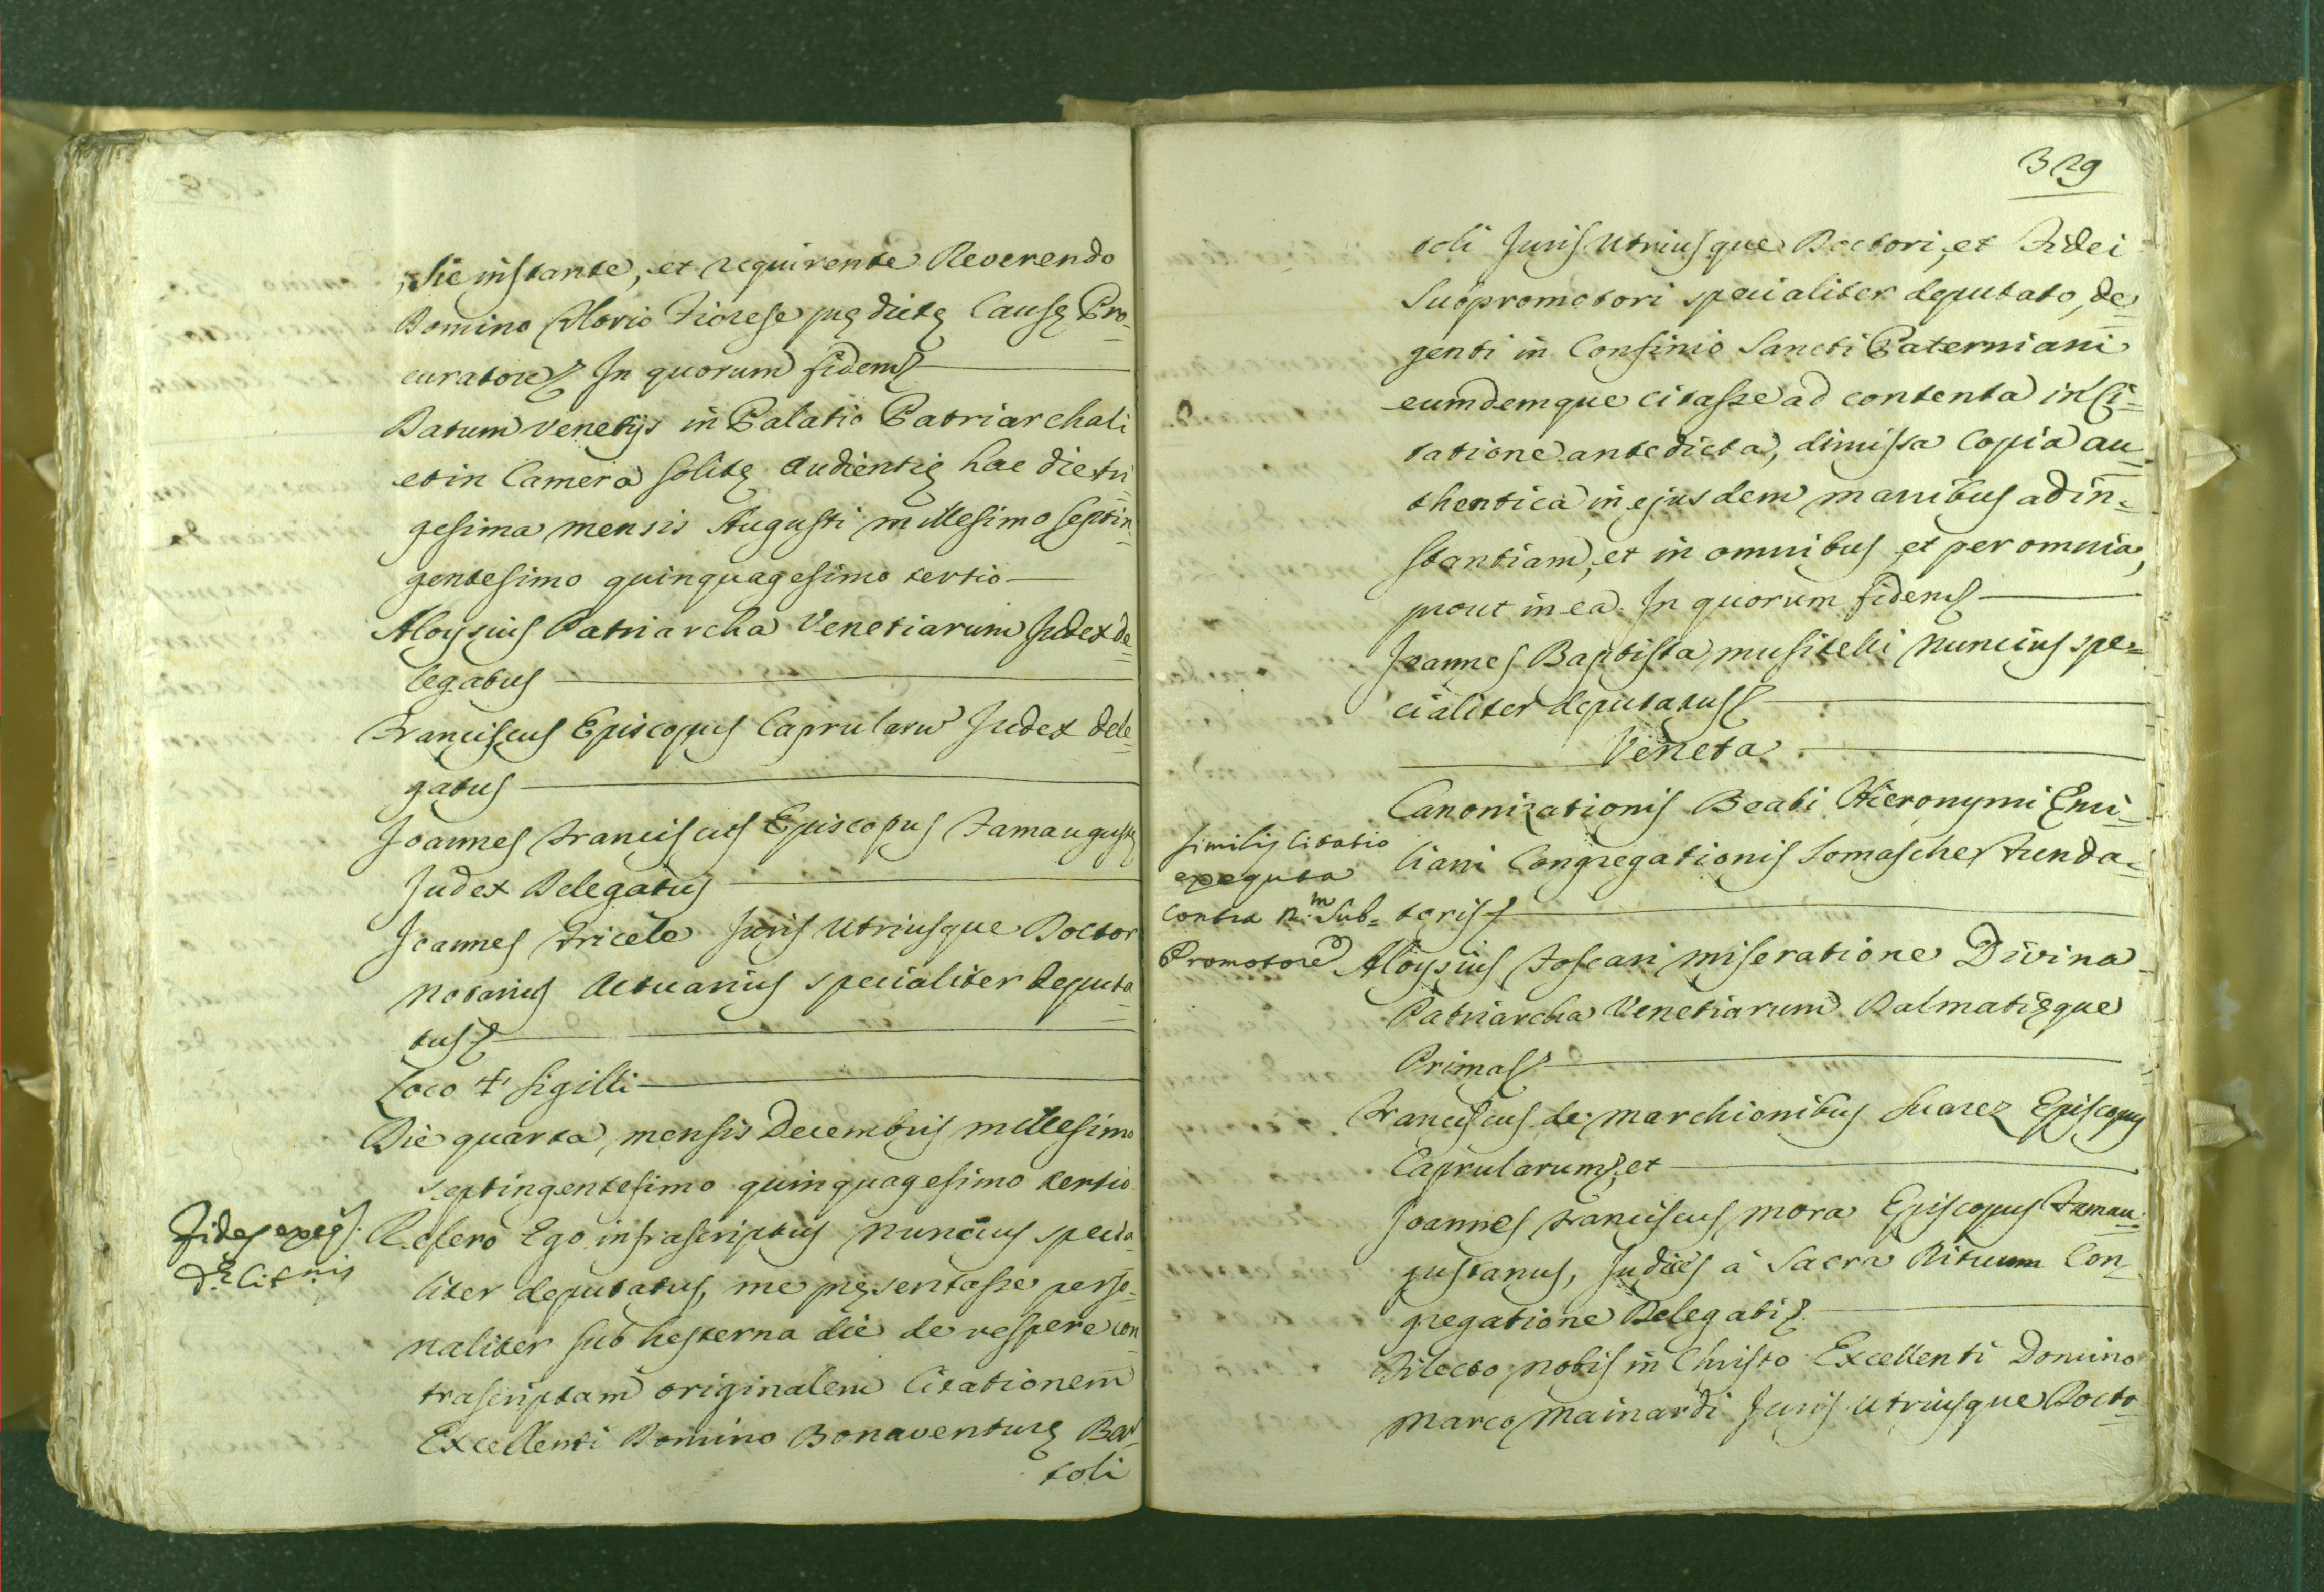 , sic instante, et requirente Reverendo
Domino Florio Fiorese prędictę Causę Pro-
curatore. In quorum fidem
Datum Venetijs in Palatio Patriarchali
et in Camera solitę Audientię hac die tri-
gesima mensis Augusti millesimo septin-
gentesimo quinquagesimo tertio
Aloysius Patriarcha Venetiarum Judex de-
legatus
Franciscus Episcopus Caprularum Judex dele-
gatus
Joannes Franciscus Episcopus Famagustę
Judex Delegatus
Joannes Fricele Juris Utriusque Doctor
Notarius Actuarius specialiter deputa-
tus
Loco + Sigilli
Die quarta mensis Decembris millesimo
septingentesimo quinquagesimo tertio
Fides exeq.
dę Cit.nis
Refero Ego infrascriptus Nuncius specia-
liter deputatus, me pręsentasse perso-
naliter sub hesterna die de vespere con-
trascriptam originalem Citationem
Excellenti Domino Bonaventurę Bar-
toli
329
toli Juris Utriusque Doctori, et Fidei
Subpromotori specialiter deputato, de-
genti in Confinio Sancti Paterniani
eumdemque citasse ad contenta in Ci-
tatione antedicta, dimissa Copia au-
thentica in ejusdem manibus ad in-
stantiam, et in omnibus et per omnia,
prout in ea. In quorum fidem
Joannes Baptista Musitelli Nuncius spe-
cialiter deputatus
Veneta
Canonizationis Beati Hieronymi Emi-
liani Congregationis Somaschę Funda-
toris
Similis Citatio
exequta
contra R.m Sub-
Promotore
Aloysius Foscari miseratione Divina
Patriarcha Venetiarum Dalmatięque
Primas
Franciscus de Marchionibus Suarez Episcopus
Caprularum, et
Joannes Franciscus Mora Episcopus Famau-
gustanus, Judices à Sacra Rituum Con-
gregatione Delegati
Dilecto nobis in Christo Excellenti Domino
Marco Mainardi Juris Utriusque Docto-